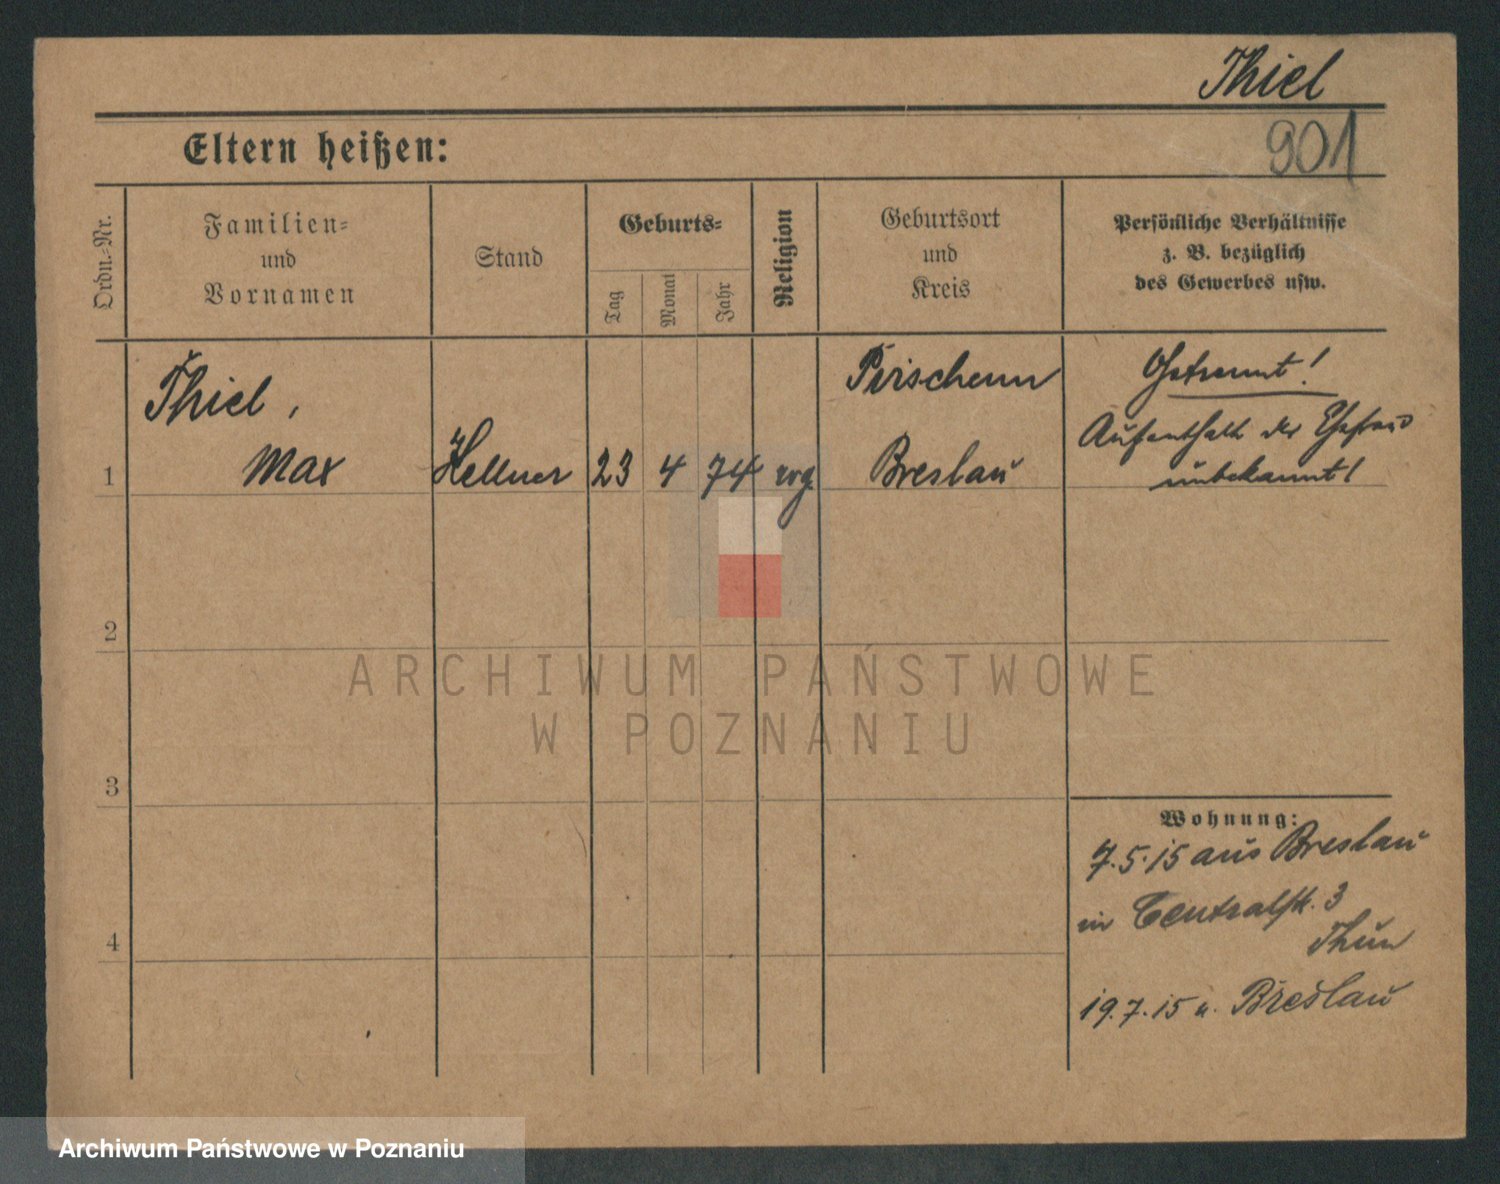 Thiel
Eltern heißen:
901
Ordn.-Nr.
Familien-
und
Vornamen
Stand
Geburts-
Tag
Monat
Jahr
Religion
Geburtsort
und
Kreis
Persönliche Verhältnisse
z. B. bezüglich
des Gewerbes usw.
Thiel,
Max
Kellner
23
4
74
evg.
Pirscham
Breslau
Getrennt!
Aufenthalt der Ehefrau
unbekannt!
1
2
3
4
Wohnung:
7.5.15 aus Breslau
in Centralstr. 3
19.7.15 n. Breslau
ARCHIWUM PAŃSTWOWE
W POZNANIU
Archiwum Państwowe w Poznaniu